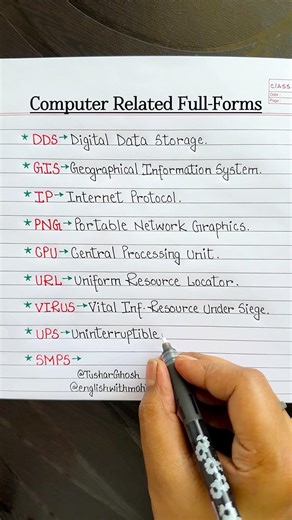 CLASS
Date :
Page :
Computer Related Full-Forms
* DDS→Digital Data Storage.
* GIS→Geographical Information System.
* IP→Internet Protocol.
* PNG→Portable Network Graphics.
* CPU→Central Processing Unit.
* URL→Uniform Resource Locator.
* VIRUS→Vital Inf. Resource Under Siege.
* UPS→Uninterruptible
* SMPS→
@TusharGhosh
@englishwithmah